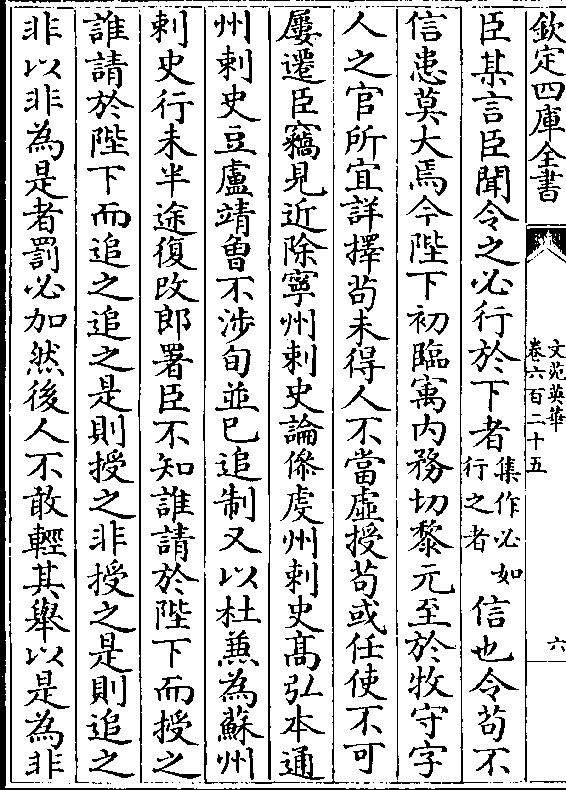 欽定四庫全書
文苑英華
卷六百二十五
六
臣某言臣聞令之必行於下者集作必如行之者信也令苟不
信患莫大焉今陛下初臨㝢内務切黎元至於牧守字
人之官所宜詳擇苟未得人不當虚授苟或任使不可
屢遷臣竊見近除寧州刺史論傪䖍州刺史髙弘本通
州刺史豆盧靖曽不涉旬並已追制又以杜蕪為蘇州
刺史行未半途復改郎署臣不知誰請於陛下而授之
誰請於陛下而追之追之是則授之非授之是則追之
非以非為是者罰必加然後人不敢輕其舉以是為非